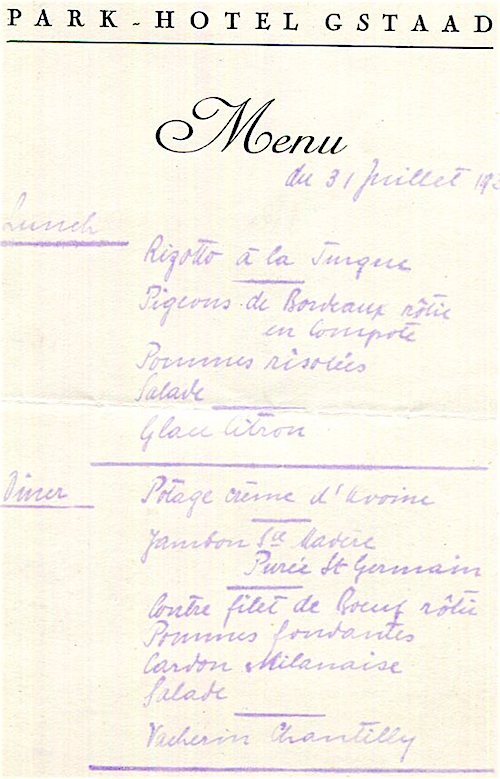 PARK-HOTEL GSTAAD
Menu
du 31 Juillet 193
Lunch
Rizotto à la Turque
Pigeons de Bordeaux rôtis
en Compote
Pommes risolées
Salade
Glace Citron
Diner
Potage crème d'Avoine
Jambon Sce Madère
Purée St Germain
Contre filet de Boeuf rôtie
Pommes fondantes
Cardon Milanaise
Salade
Vacherin Chantilly